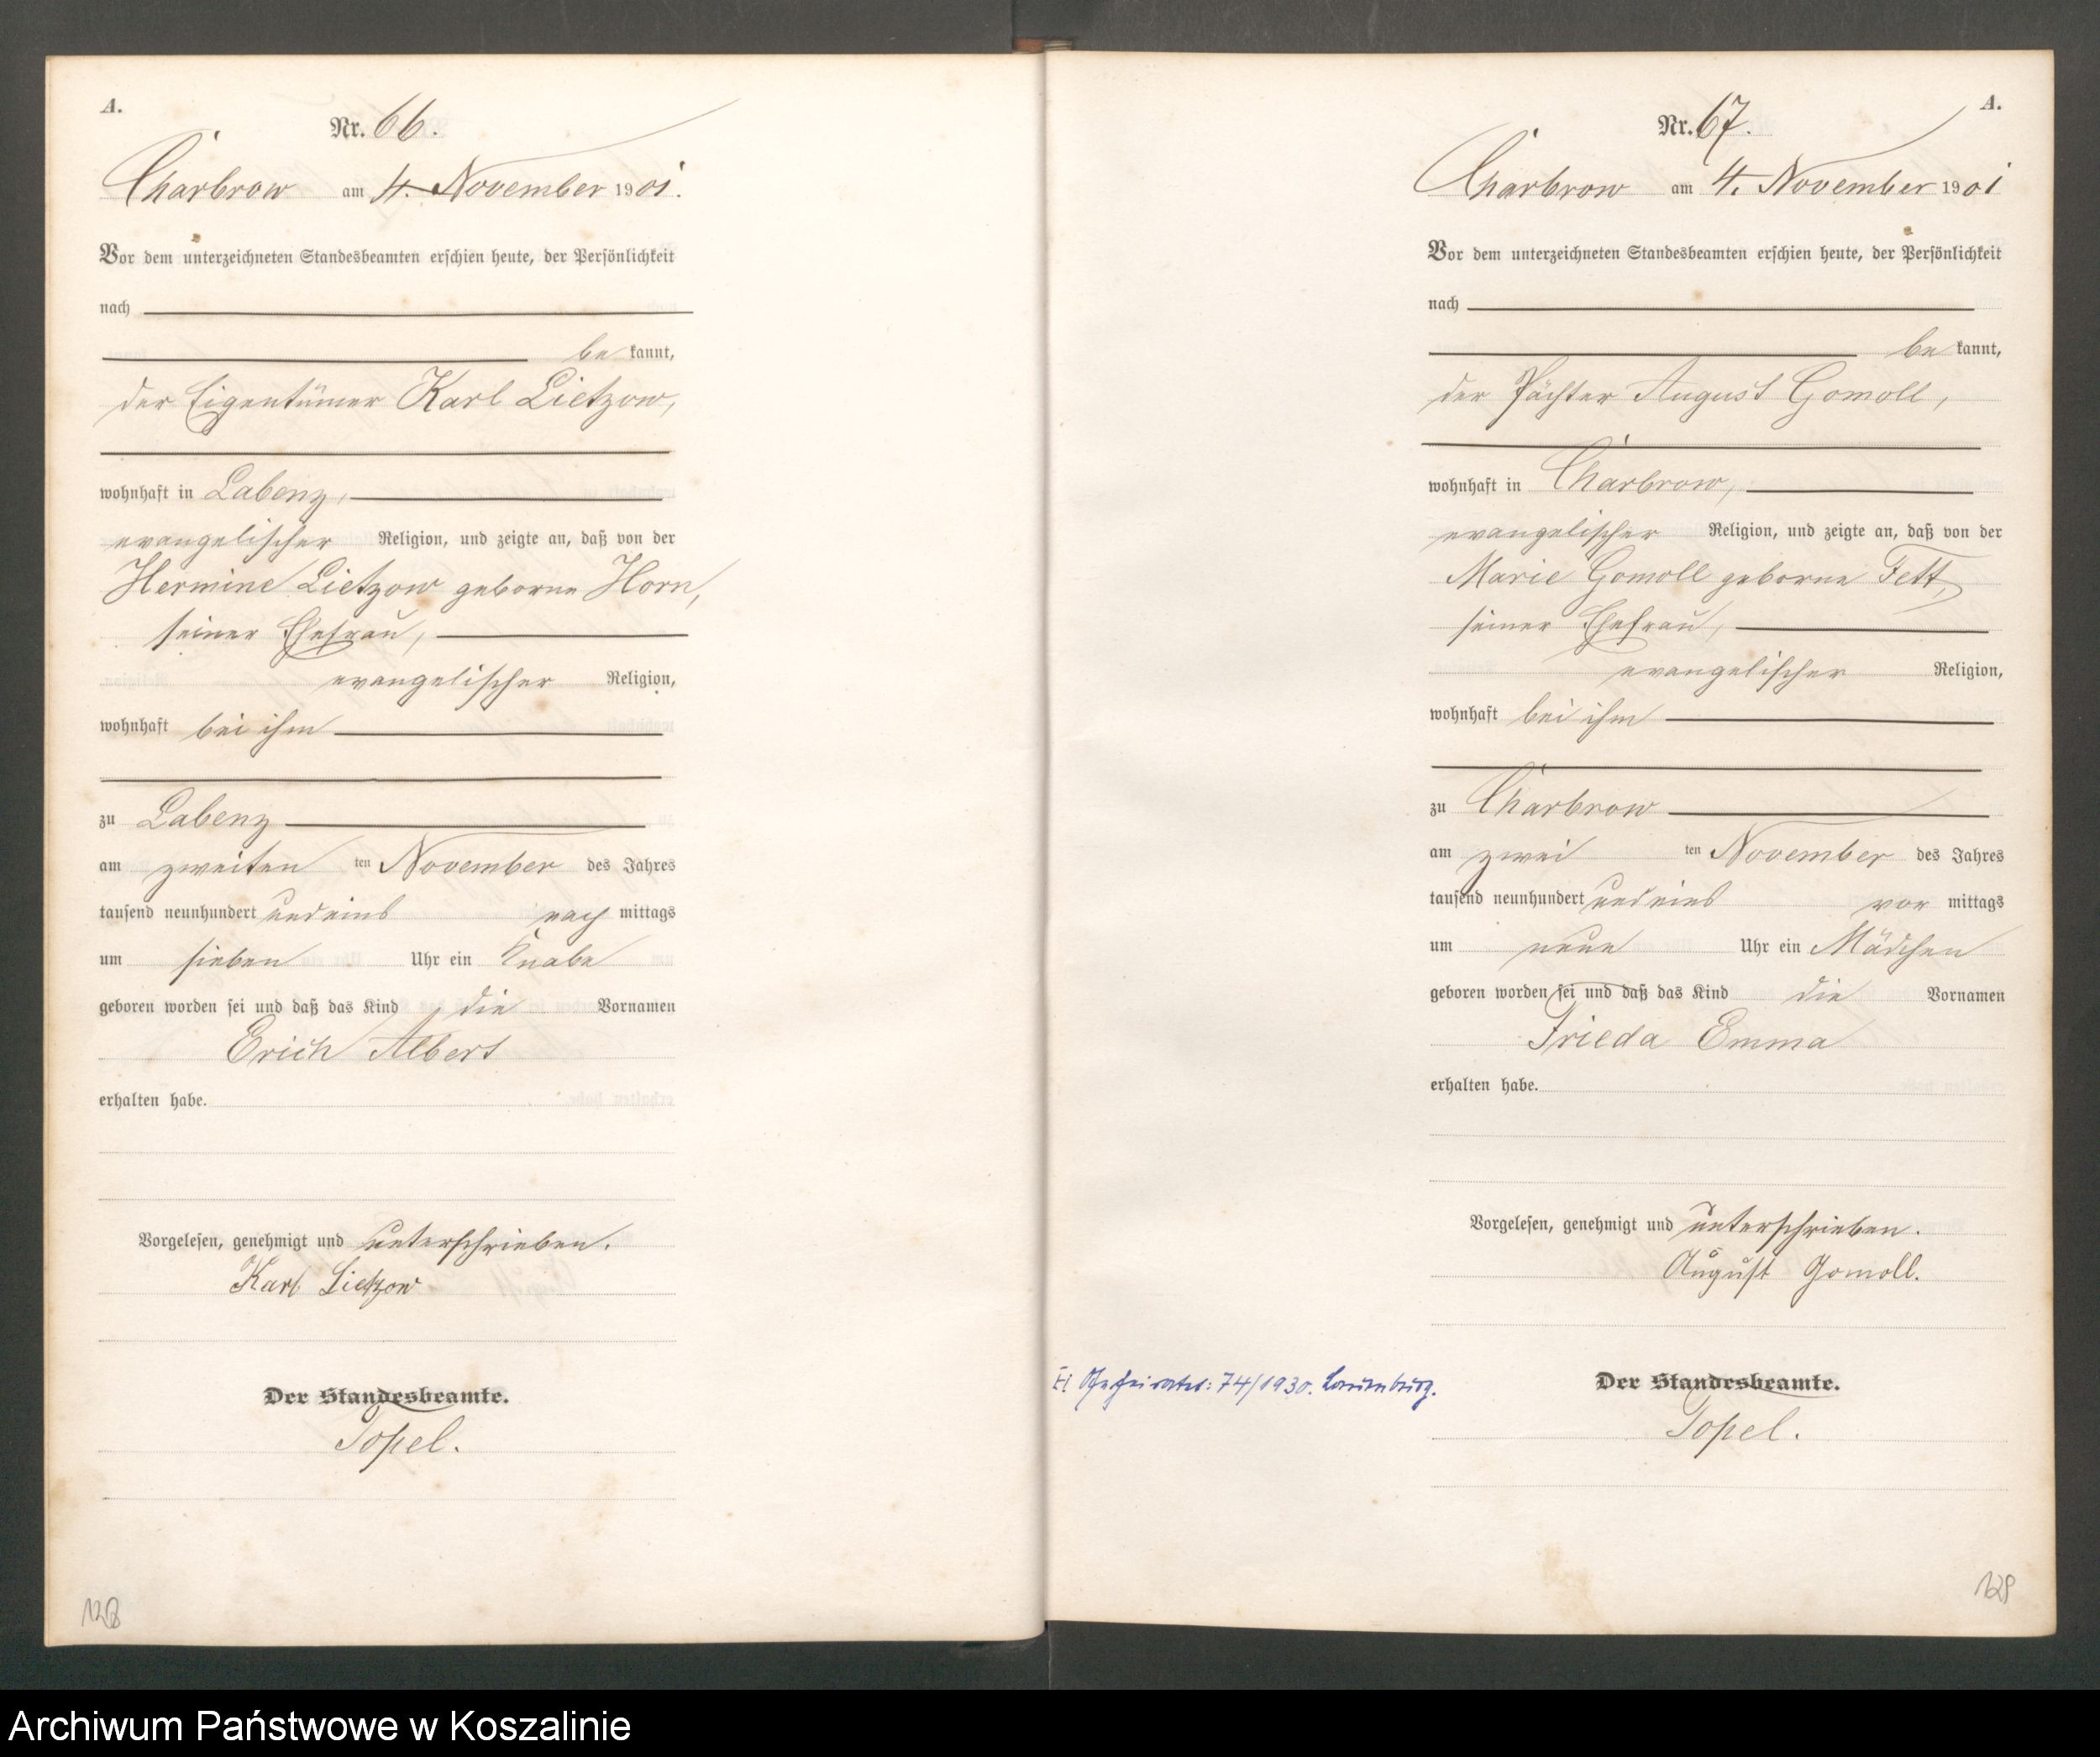 A.
Nr. 66.
Charbrow am 4. November 1901.
Vor dem unterzeichneten Standesbeamten erschien heute, der Persönlichkeit
nach
be kannt,
der Eigentümer Karl Lietzow,
wohnhaft in Labenz,
evangelischer Religion, und zeigte an, daß von der
Hermine Lietzow geborne Horn,
seiner Ehefrau,
evangelischer Religion,
wohnhaft bei ihm
zu Labenz
am zweiten ten November des Jahres
tausend neunhundert und eins nach mittags
um sieben Uhr ein Knabe
geboren worden sei und daß das Kind die Vornamen
Erich Albert
erhalten habe.
Vorgelesen, genehmigt und unterschrieben.
Karl Lietzow
Der Standesbeamte.
Topel.
128
A.
Nr. 67.
Charbrow am 4. November 1901
Vor dem unterzeichneten Standesbeamten erschien heute, der Persönlichkeit
nach
be kannt,
der Pächter August Gomoll,
wohnhaft in Charbrow,
evangelischer Religion, und zeigte an, daß von der
Marie Gomoll geborne Fett,
seiner Ehefrau,
evangelischer Religion,
wohnhaft bei ihm
zu Charbrow
am zwei ten November des Jahres
tausend neunhundert und eins vor mittags
um neun Uhr ein Mädchen
geboren worden sei und daß das Kind die Vornamen
Frieda Emma
erhalten habe.
Vorgelesen, genehmigt und unterschrieben.
August Gomoll.
74/1930. Lauenburg.
Der Standesbeamte.
Topel.
129
Archiwum Państwowe w Koszalinie